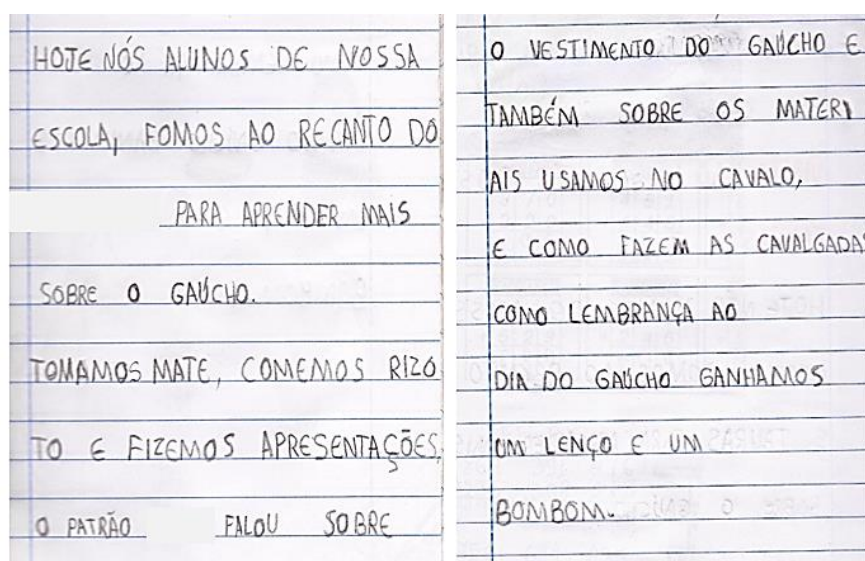 HOJE NÓS ALUNOS DE NOSSA
ESCOLA, FOMOS AO RECANTO DO
PARA APRENDER MAIS
SOBRE O GAÚCHO.
TOMAMOS MATE, COMEMOS RIZO
TO E FIZEMOS APRESENTAÇÕES,
O PATRÃO FALOU SOBRE
O VESTIMENTO DO GAÚCHO E
TAMBÉM SOBRE OS MATERI
AIS USAMOS NO CAVALO,
E COMO FAZEM AS CAVALGADAS
COMO LEMBRANÇA AO
DIA DO GAÚCHO GANHAMOS
UM LENÇO E UM
BOMBOM.